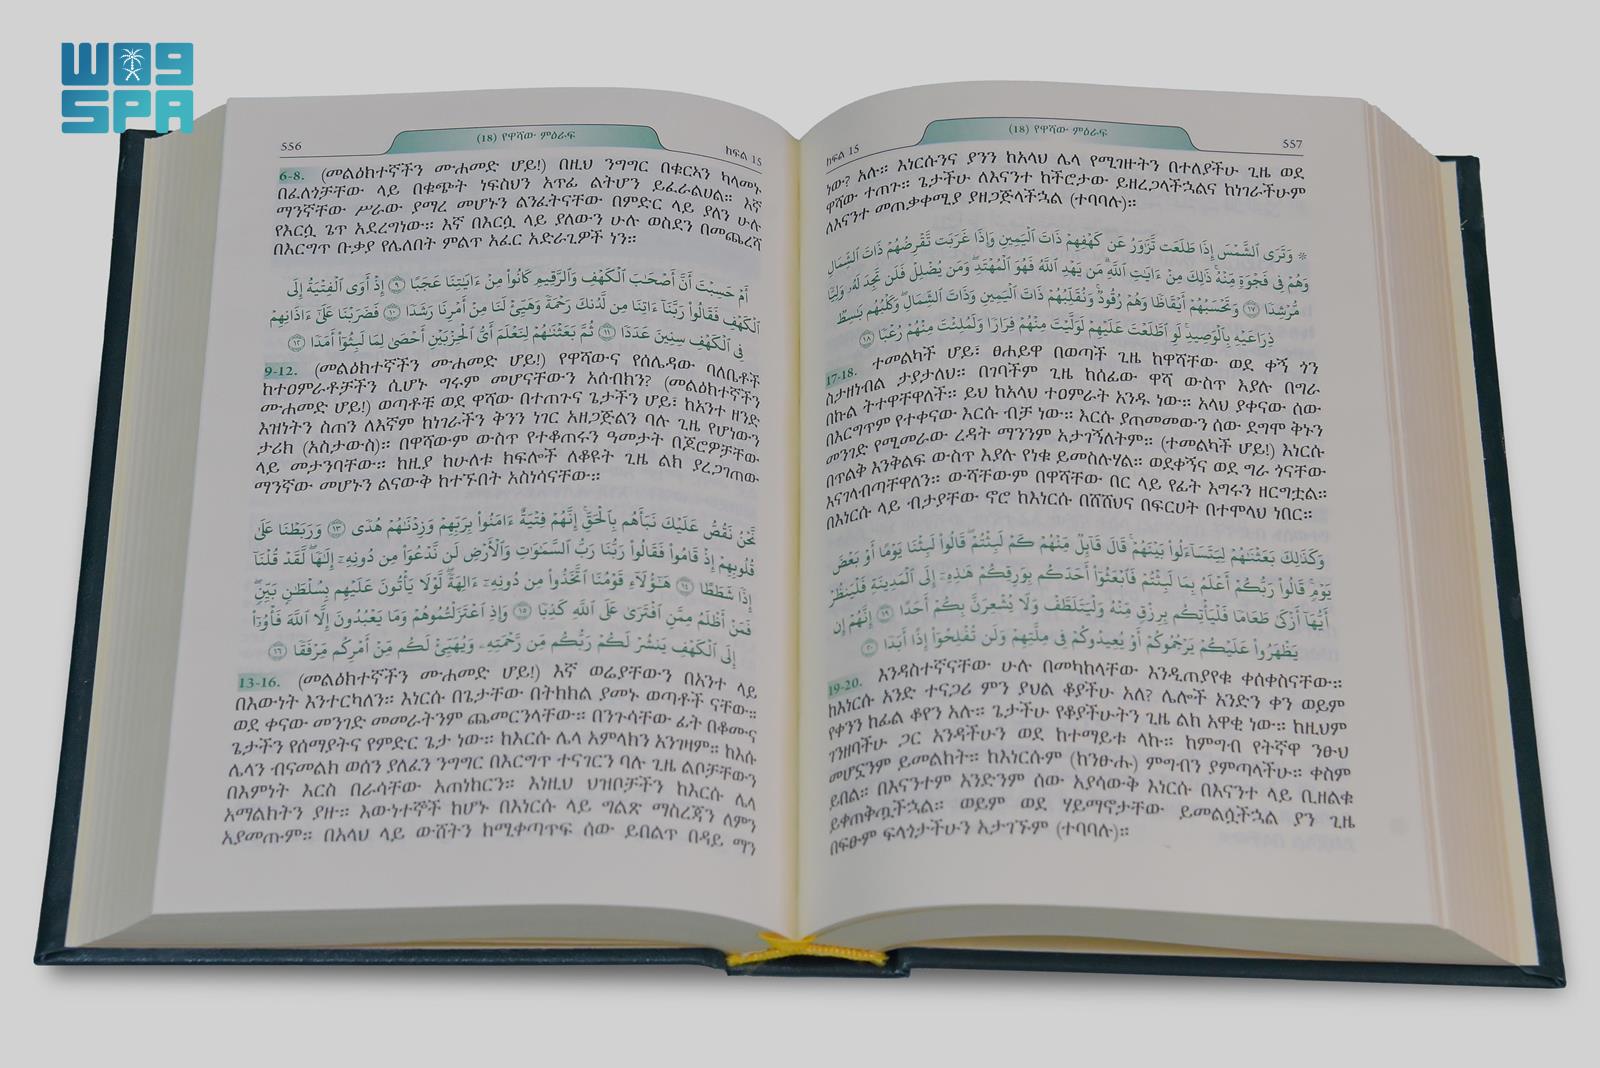 واس
SPA
556
(18) የዋሻው ምዕራፍ
ክፍል 15
6-8. (መልዕክተኛችን ሙሐመድ ሆይ!) በዚህ ንግግር በቁርኣን ካላመኑ
በፈለጎቻቸው ላይ በቁጭት ነፍስህን አጥፊ ልትሆን ይፈራልሀል። እኛ
ማንኛቸው ሥራው ያማረ መሆኑን ልንፈትናቸው በምድር ላይ ያለን ሁሉ
የእርሷ ጌጥ አደረግነው። እኛ በእርሷ ላይ ያለውን ሁሉ ወስደን በመጨረሻ
በእርግጥ ቡቃያ የሌለበት ምልጥ አፈር አድራጊዎች ነን።
أَمْ حَسِبْتَ أَنَّ أَصْحَٰبَ ٱلْكَهْفِ وَٱلرَّقِيمِ كَانُوا۟ مِنْ ءَايَٰتِنَا عَجَبًا ٩ إِذْ أَوَى ٱلْفِتْيَةُ إِلَى
ٱلْكَهْفِ فَقَالُوا۟ رَبَّنَآ ءَاتِنَا مِن لَّدُنكَ رَحْمَةً وَهَيِّئْ لَنَا مِنْ أَمْرِنَا رَشَدًا ١٠ فَضَرَبْنَا عَلَىٰٓ ءَاذَانِهِمْ
فِى ٱلْكَهْفِ سِنِينَ عَدَدًا ١١ ثُمَّ بَعَثْنَٰهُمْ لِنَعْلَمَ أَىُّ ٱلْحِزْبَيْنِ أَحْصَىٰ لِمَا لَبِثُوٓا۟ أَمَدًا ١٢
9-12. (መልዕክተኛችን ሙሐመድ ሆይ!) የዋሻውና የሰሌዳው ባለቤቶች
ከተዐምራቶቻችን ሲሆኑ ግሩም መሆናቸውን አሰብክን? (መልዕክተኛችን
ሙሐመድ ሆይ!) ወጣቶቹ ወደ ዋሻው በተጠጉና ጌታችን ሆይ፣ ከአንተ ዘንድ
እዝነትን ስጠን ለእኛም ከነገራችን ቅንን ነገር አዘጋጅልን ባሉ ጊዜ የሆነውን
ታሪክ (አስታውስ)። በዋሻውም ውስጥ የተቆጠሩን ዓመታት በጆሮዎቻቸው
ላይ መታንባቸው። ከዚያ ከሁለቱ ክፍሎች ለቆዩት ጊዜ ልክ ያረጋገጠው
ማንኛው መሆኑን ልናውቅ ከተኙበት አስነሳናቸው።
نَّحْنُ نَقُصُّ عَلَيْكَ نَبَأَهُم بِٱلْحَقِّ إِنَّهُمْ فِتْيَةٌ ءَامَنُوا۟ بِرَبِّهِمْ وَزِدْنَٰهُمْ هُدًى ١٣ وَرَبَطْنَا عَلَىٰ
قُلُوبِهِمْ إِذْ قَامُوا۟ فَقَالُوا۟ رَبُّنَا رَبُّ ٱلسَّمَٰوَٰتِ وَٱلْأَرْضِ لَن نَّدْعُوَا۟ مِن دُونِهِۦٓ إِلَٰهًا لَّقَدْ قُلْنَآ
إِذًا شَطَطًا ١٤ هَٰٓؤُلَآءِ قَوْمُنَا ٱتَّخَذُوا۟ مِن دُونِهِۦٓ ءَالِهَةً لَّوْلَا يَأْتُونَ عَلَيْهِم بِسُلْطَٰنٍۭ بَيِّنٍ
فَمَنْ أَظْلَمُ مِمَّنِ ٱفْتَرَىٰ عَلَى ٱللَّهِ كَذِبًا ١٥ وَإِذِ ٱعْتَزَلْتُمُوهُمْ وَمَا يَعْبُدُونَ إِلَّا ٱللَّهَ فَأْوُۥٓا۟
إِلَى ٱلْكَهْفِ يَنشُرْ لَكُمْ رَبُّكُم مِّن رَّحْمَتِهِۦ وَيُهَيِّئْ لَكُم مِّنْ أَمْرِكُم مِّرْفَقًا ١٦
13-16. (መልዕክተኛችን ሙሐመድ ሆይ!) እኛ ወሬያቸውን በአንተ ላይ
በእውነት እንተርካለን። እነርሱ በጌታቸው በትክክል ያመኑ ወጣቶች ናቸው።
ወደ ቀናው መንገድ መመራትንም ጨመርንላቸው። በንጉሳቸው ፊት በቆሙና
ጌታችን የሰማያትና የምድር ጌታ ነው። ከእርሱ ሌላ አምላክን አንገዛም። ከእሱ
ሌላን ብናመልክ ወሰን ያለፈን ንግግር በእርግጥ ተናገርን ባሉ ጊዜ ልቦቻቸውን
በእምነት እርስ በራሳቸው አጠነከርን። እነዚህ ህዝቦቻችን ከእርሱ ሌላ
አማልክትን ያዙ። እውነተኞች ከሆኑ በእነርሱ ላይ ግልጽ ማስረጃን ለምን
አያመጡም። በአላህ ላይ ውሸትን ከሚቀጣጥፍ ሰው ይበልጥ በዳይ ማን
ክፍል 15
(18) የዋሻው ምዕራፍ
557
ነው? አሉ። እነርሱንና ያንን ከአላህ ሌላ የሚገዙትን በተለያችሁ ጊዜ ወደ
ዋሻው ተጠጉ። ጌታችሁ ለእናንተ ከችሮታው ይዘረጋላችኋልና ከነገራችሁም
ለእናንተ መጠቃቀሚያ ያዘጋጅላችኋል (ተባባሉ)።
* وَتَرَى ٱلشَّمْسَ إِذَا طَلَعَت تَّزَٰوَرُ عَن كَهْفِهِمْ ذَاتَ ٱلْيَمِينِ وَإِذَا غَرَبَت تَّقْرِضُهُمْ ذَاتَ ٱلشِّمَالِ
وَهُمْ فِى فَجْوَةٍ مِّنْهُ ذَٰلِكَ مِنْ ءَايَٰتِ ٱللَّهِ مَن يَهْدِ ٱللَّهُ فَهُوَ ٱلْمُهْتَدِ وَمَن يُضْلِلْ فَلَن تَجِدَ لَهُۥ وَلِيًّا
مُّرْشِدًا ١٧ وَتَحْسَبُهُمْ أَيْقَاظًا وَهُمْ رُقُودٌ وَنُقَلِّبُهُمْ ذَاتَ ٱلْيَمِينِ وَذَاتَ ٱلشِّمَالِ وَكَلْبُهُم بَٰسِطٌ
ذِرَاعَيْهِ بِٱلْوَصِيدِ لَوِ ٱطَّلَعْتَ عَلَيْهِمْ لَوَلَّيْتَ مِنْهُمْ فِرَارًا وَلَمُلِئْتَ مِنْهُمْ رُعْبًا ١٨
17-18. ተመልካች ሆይ፣ ፀሐይዋ በወጣች ጊዜ ከዋሻቸው ወደ ቀኝ ጎን
ስታዘነብል ታያታለህ። በገባችም ጊዜ ከሰፊው ዋሻ ውስጥ እያሉ በግራ
በኩል ትተዋቸዋለች። ይህ ከአላህ ተዐምራት አንዱ ነው። አላህ ያቀናው ሰው
በእርግጥም የተቀናው እርሱ ብቻ ነው። እርሱ ያጠመመውን ሰው ደግሞ ቅኑን
መንገድ የሚመራው ረዳት ማንንም አታገኝለትም። (ተመልካች ሆይ!) እነርሱ
በጥልቅ እንቅልፍ ውስጥ እያሉ የነቁ ይመስሉሃል። ወደቀኝና ወደ ግራ ጎናቸው
እናገላብጣቸዋለን። ውሻቸውም በዋሻቸው በር ላይ የፊት እግሩን ዘርግቷል።
በእነርሱ ላይ ብታያቸው ኖሮ ከእነርሱ በሸሸህና በፍርሀት በተሞላህ ነበር።
وَكَذَٰلِكَ بَعَثْنَٰهُمْ لِيَتَسَآءَلُوا۟ بَيْنَهُمْ قَالَ قَآئِلٌ مِّنْهُمْ كَمْ لَبِثْتُمْ قَالُوا۟ لَبِثْنَا يَوْمًا أَوْ بَعْضَ
يَوْمٍ قَالُوا۟ رَبُّكُمْ أَعْلَمُ بِمَا لَبِثْتُمْ فَٱبْعَثُوٓا۟ أَحَدَكُم بِوَرِقِكُمْ هَٰذِهِۦٓ إِلَى ٱلْمَدِينَةِ فَلْيَنظُرْ
أَيُّهَآ أَزْكَىٰ طَعَامًا فَلْيَأْتِكُم بِرِزْقٍ مِّنْهُ وَلْيَتَلَطَّفْ وَلَا يُشْعِرَنَّ بِكُمْ أَحَدًا ١٩ إِنَّهُمْ إِن
يَظْهَرُوا۟ عَلَيْكُمْ يَرْجُمُوكُمْ أَوْ يُعِيدُوكُمْ فِى مِلَّتِهِمْ وَلَن تُفْلِحُوٓا۟ إِذًا أَبَدًا ٢٠
19-20. እንዳስተኛናቸው ሁሉ በመካከላቸው እንዲጠያየቁ ቀሰቀስናቸው።
ከእነርሱ አንድ ተናጋሪ ምን ያህል ቆያችሁ አለ? ሌሎች አንድን ቀን ወይም
የቀንን ከፊል ቆየን አሉ። ጌታችሁ የቆያችሁትን ጊዜ ልክ አዋቂ ነው። ከዚህም
ገንዘባችሁ ጋር አንዳችሁን ወደ ከተማይቱ ላኩ። ከምግብ የትኛዋ ንፁህ
መሆኗንም ይመልከት። ከእነርሱም (ከንፁሑ) ምግብን ያምጣላችሁ። ቀስም
ይበል። በእናንተም አንድንም ሰው አያሳውቅ እነርሱ በእናንተ ላይ ቢዘልቁ
ይቀጠቅጧችኋል። ወይም ወደ ሃይማኖታቸው ይመልሷችኋል ያን ጊዜ
በፍፁም ፍላጎታችሁን አታገኙም (ተባባሉ)።